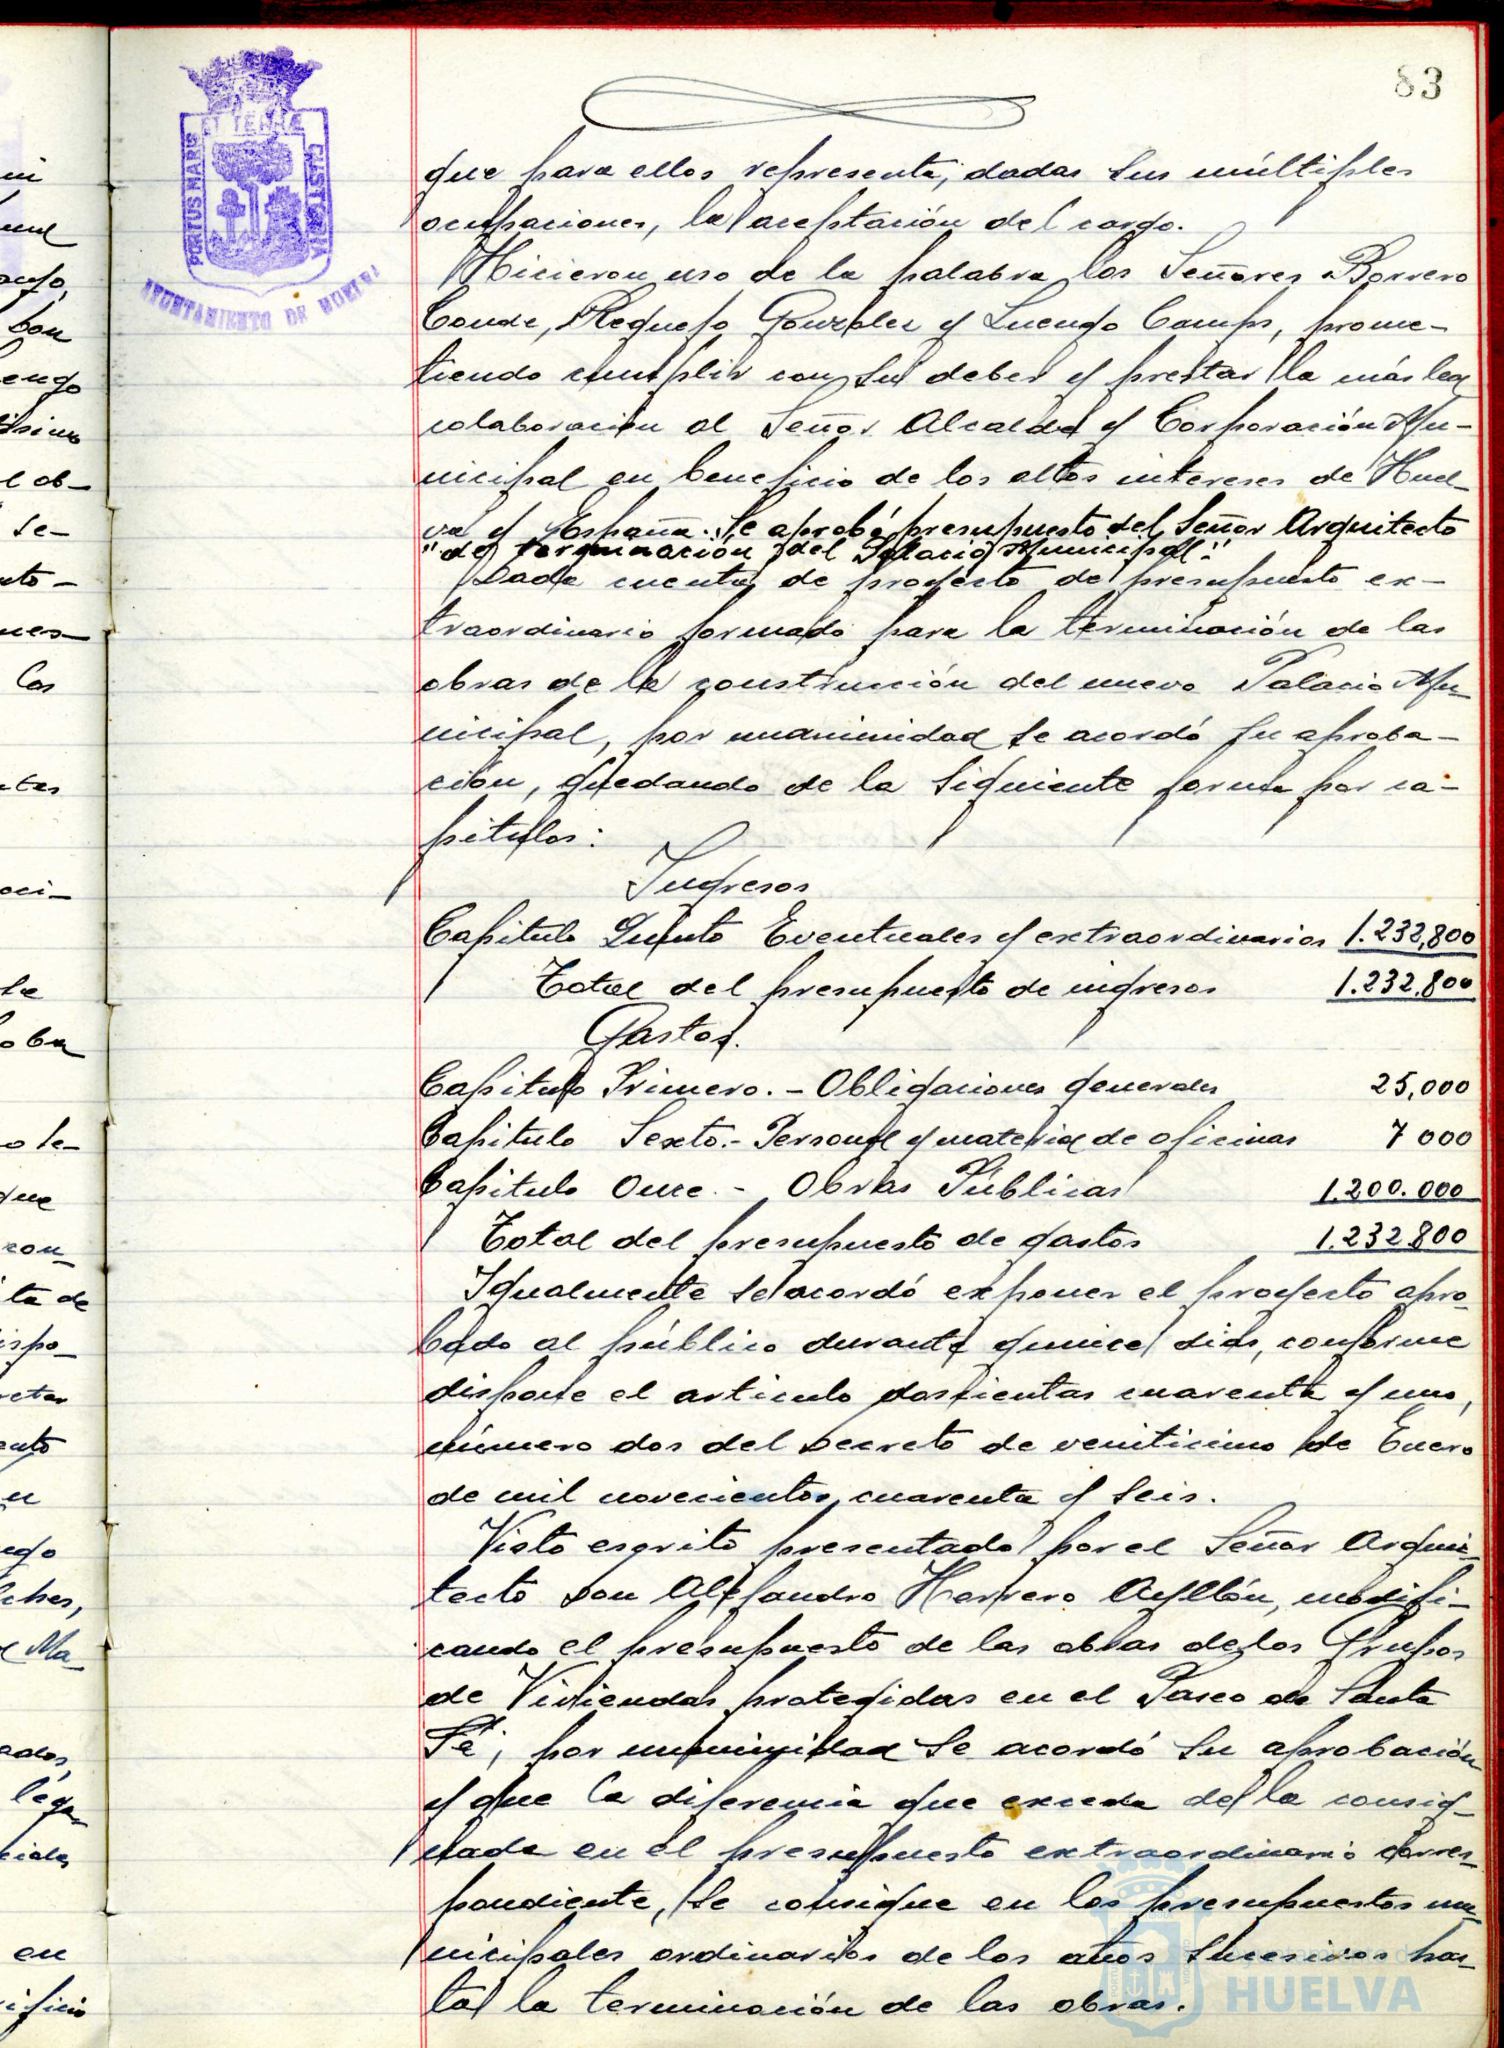 83
PORTUS MARIS ET TERRÆ CUSTODIA
AYUNTAMIENTO DE HUELVA
que para ellos representa, dadas sus múltiples
ocupaciones, la aceptación del cargo.
Hicieron uso de la palabra los Señores Borrero
Conde, Requejo González y Luengo Camps, prome-
tiendo cumplir con su deber y prestar la más leal
colaboración al Señor Alcalde y Corporación Mu-
nicipal en beneficio de los altos intereses de Huel-
va y España. Se aprobó presupuesto del Señor Arquitecto
"de terminación del Palacio Municipal."
Dada cuenta de proyecto de presupuesto ex-
traordinario formado para la terminación de las
obras de la construcción del nuevo Palacio Mu-
nicipal, por unanimidad se acordó su aproba-
ción, quedando de la siguiente forma por ca-
pítulos:
Ingresos
Capítulo Quinto Eventuales y extraordinarios 1.232,800
Total del presupuesto de ingresos 1.232.800
Gastos.
Capítulo Primero. - Obligaciones generales 25,000
Capítulo Sexto.- Personal y material de oficinas 7 000
Capítulo Once. - Obras Públicas 1.200.000
Total del presupuesto de gastos 1.232.800
Igualmente se acordó exponer el proyecto apro-
bado al público durante quince dias, conforme
dispone el articulo doscientas cuarenta y uno,
número dos del Decreto de veiticinco de Enero
de mil novecientos cuarenta y seis.
Visto esqrito presentado por el Señor Arqui-
tecto Don Alejandro Herrero Ayllón, modifi-
cando el presupuesto de las obras de los Grupos
de Viviendas protegidas en el Paseo de Santa
Fé, por unanimidad se acordó su aprobación
y que la diferencia que exceda de la consig-
nada en el presupuesto extraordinario corres-
pondiente, se consigne en los presupuestos mu-
nicipales ordinarios de los años sucesivos has-
ta la terminación de las obras.
HUELVA